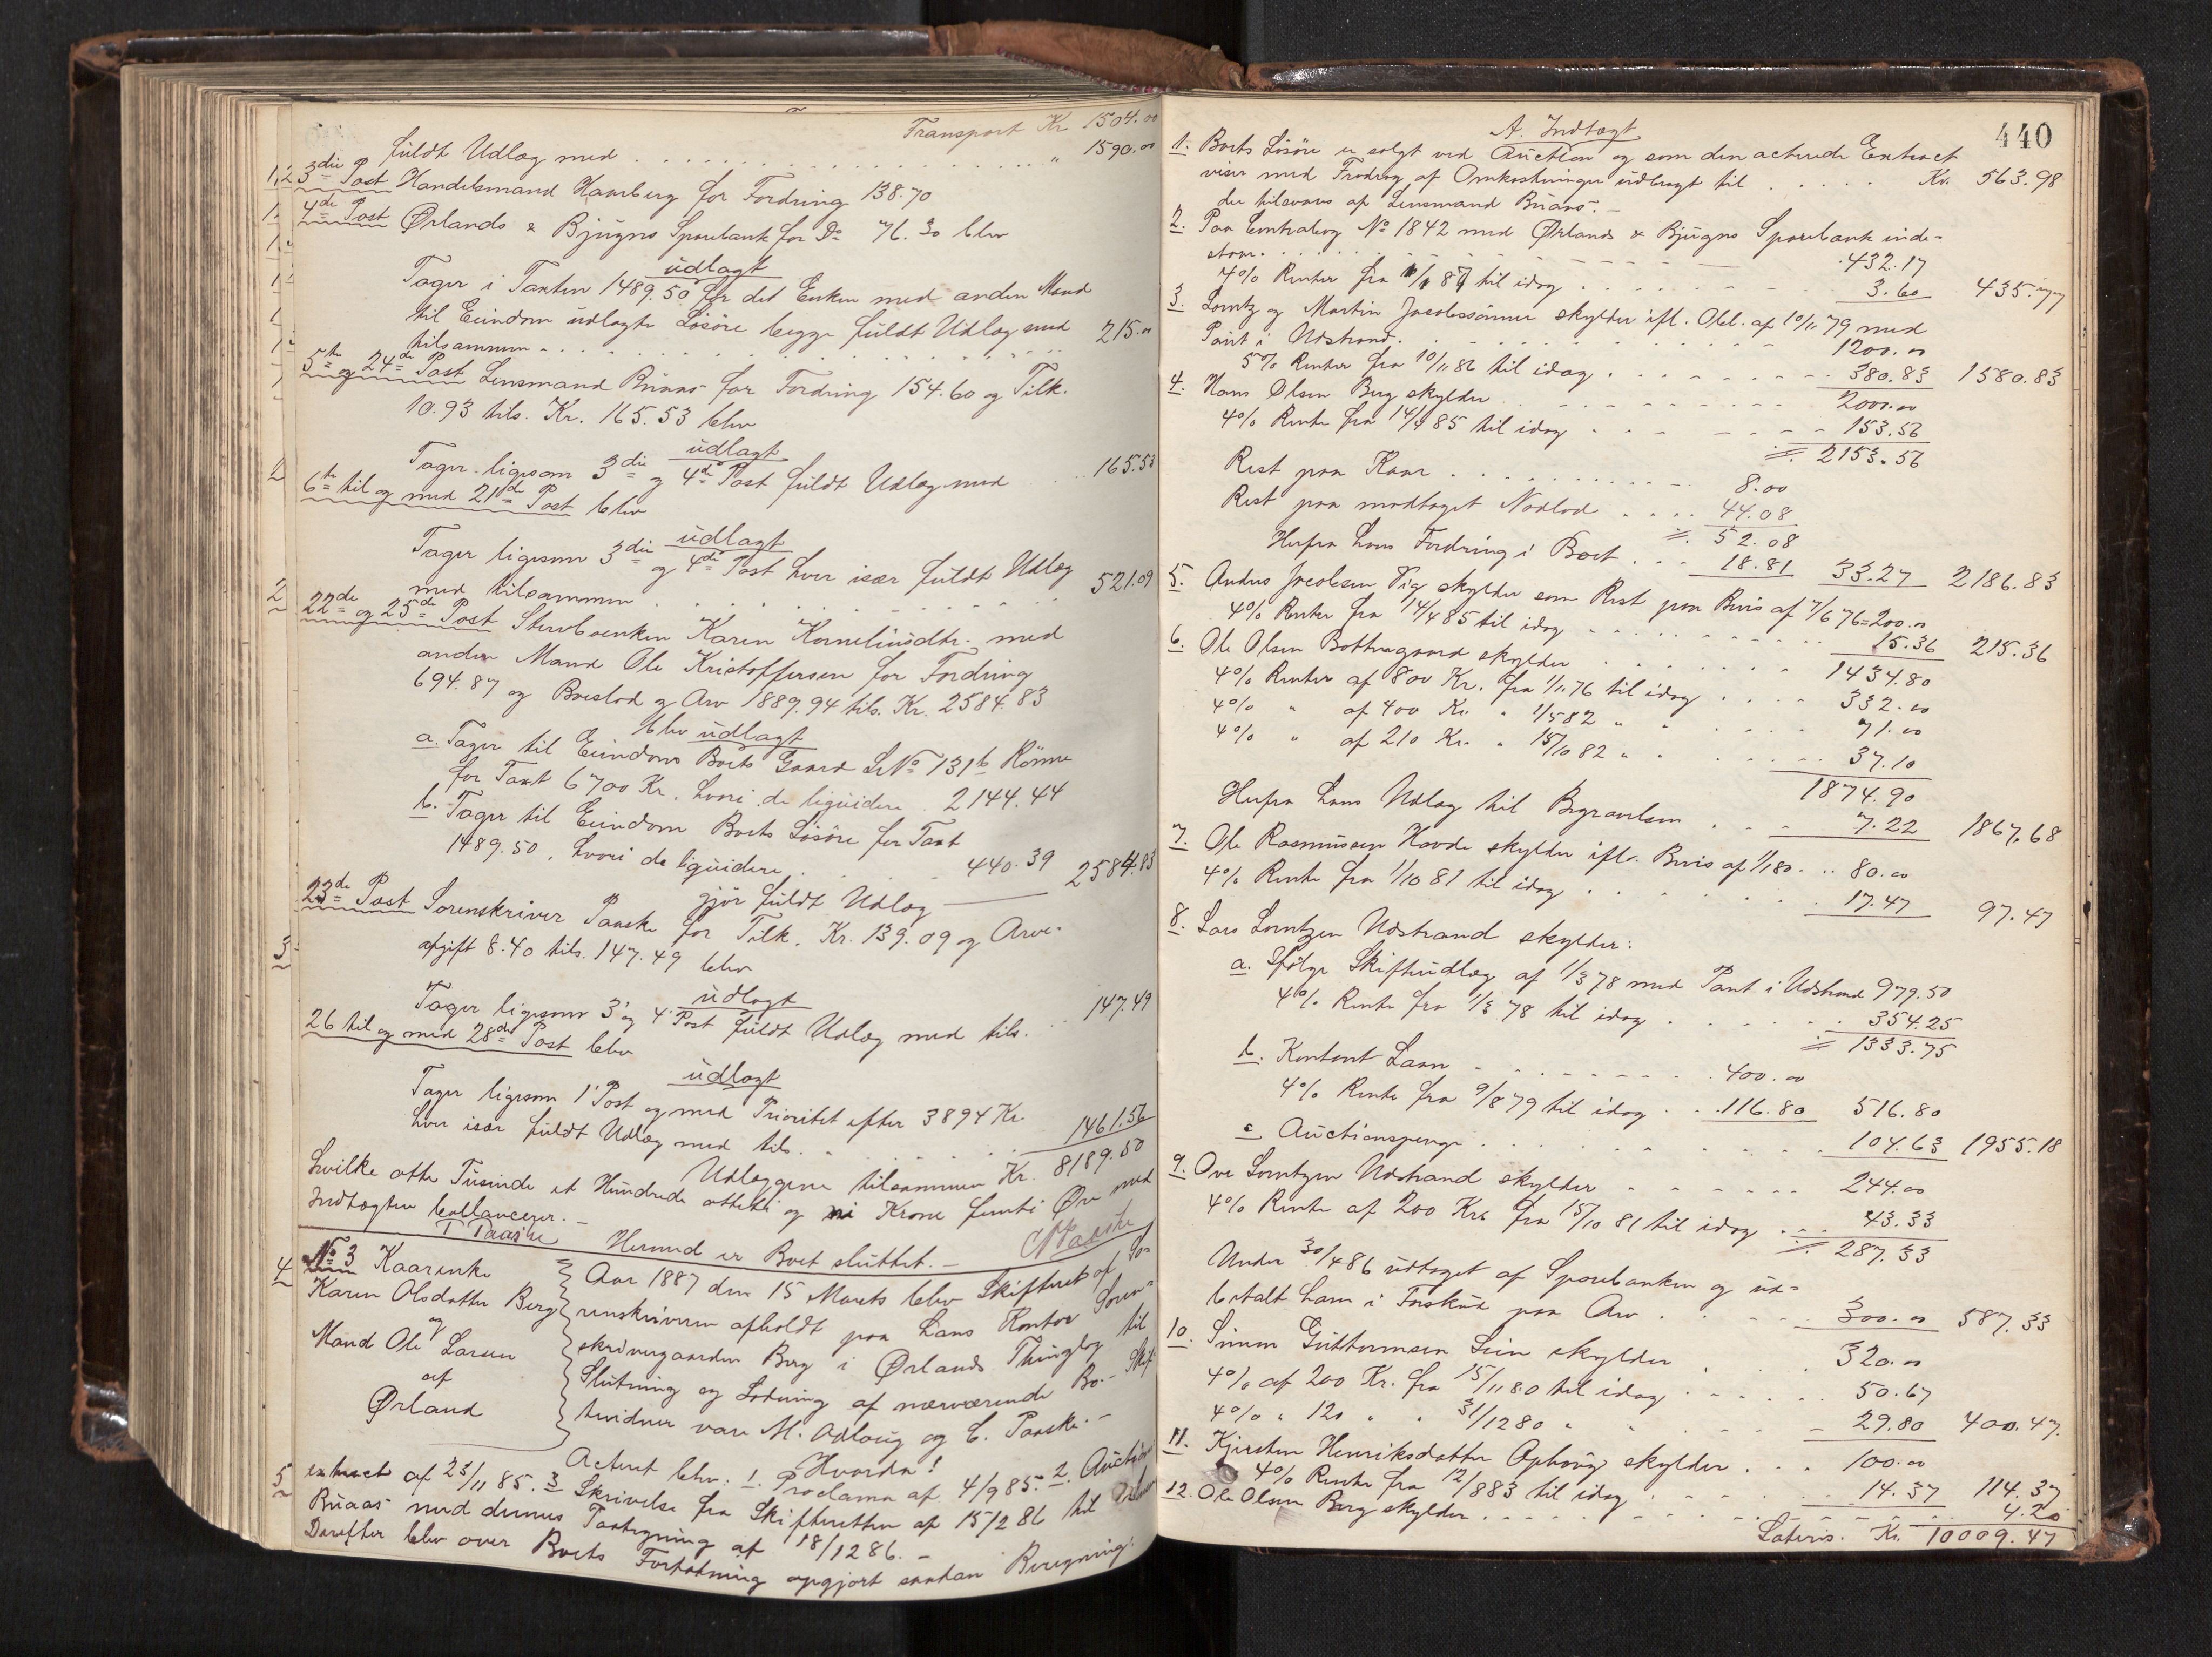 Transport Kr. 1504.00
fuldt Udlæg med . . . . " 1590.00
3die Post Handelsmand Hamberg for Fordring 138.70
4de Post Ørlands & Bjugns Sparebank for Do 76.30 blev
udlagt
Tager i Taxten 1489.50 for det Enken med anden Mand
til Eiendom udlagte Løsøre begge fuldt Udlæg med
tilsammen . . . . 215.00
5te og 24de Post Lensmand Buaas for Fordring 154.60 og Tilk.
10.93 tils. Kr. 165.53 blev
udlagt
Tager ligesom 3die og 4de Post fuldt Udlæg med . . 165.53
6te til og med 21de Post blev
udlagt
Tager ligesom 3die og 4de Post hver især fuldt Udlæg
med tilsammen . . . . 521.09
22de og 25de Post Stervboenken Karen Korneliusdtr. med
anden Mand Ole Kristoffersen for Fordring
694.87 og Boeslod og Arv 1889.94 tils. Kr. 2584.83
blev udlagt
a. Tager til Eiendom Boets Gaard LNo 131b Rönne
for Taxt 6700 Kr. hvori de liquidere . 2144.44
b. Tager til Eiendom Boets Løsøre for Taxt
1489.50, hvori de liquidere . . . 440.39 2584.83
gjør fuldt Udlæg
23de Post Sorenskriver Paaske for Tilk. Kr. 139.09 og Arve-
afgift 8.40 tils. 147.49 blev
udlagt
Tager ligesom 3' og 4' Post fuldt Udlæg med tils. . . 147.49
26 til og med 28de Post blev
udlagt
Tager ligesom 1' Post og med Prioritet efter 3894 Kr.
hver især fuldt Udlæg med tils. . . . 1461.56
Udlæggene tilsammen Kr. 8189.50
hvilke otte Tusinde et Hundrede otteti og ni Krone femti Øre med
Indtægten ballancerer. –
T Paaske Hermed er Boet sluttet. – Paaske
No 3 Kaarenke
Karen Olsdatter Berg
og
Mand Ole Larsen
af
Ørland
Aar 1887 den 15 Marts blev Skifteret af So-
renskriveren afholdt paa hans Kontor Soren-
skrivergaarden Berg i Ørlands Thinglag til
Slutning og Lodning af nærværende Bo. – Skif-
tevidner vare M. Adlaug og C. Paaske. –
Hvorda!
Acteret blev. 1. Proclama af 4/9 85. 2. Auctions
extract af 23/11 85. 3 Skrivelse fra Skifteretten af 15/12 86 til
Buaas med dennes Paategning af 18/12 86. –
Derefter blev over Boets Forfatning opgjort saadan Beregning:
440
A. Indtægt
1. Boets Løsøre er solgt ved Auction og som den acterede Extract
viser med Fradrag af Omkostninger udbragt til . . . . Kr. 563.98
der tilsvares af Lensmand Buaas. –
2. Paa Contrabog No 1842 med Ørlands & Bjugns Sparebank inde-
staar . . . . 432.17
4% Renter fra 1/1 87 til idag . . . . 3.60 435.77
3. Lorntz og Martin Jacobssønner skylder ifl. Obl. af 10/11 79 med
Pant i Udstrand . . . . 1200.00
5% Renter fra 10/11 86 til idag . . . . 380.83 1580.83
4. Hans Olsen Berg skylder . . . . 2000.00
4% Rente fra 14/4 85 til idag . . . . 153.56
÷ 2153.56
Rest paa Kaar . . . . 8.00
Rest paa modtaget Nødlod . . . . 44.08
÷ 52.08
Herfra hans Fordring i Boet . . . 18.81 33.27 2186.83
5. Anders Jacobsen Vig skylder som Rest paa Bevis af 7/6 76 = 200.00
4% Renter fra 14/4 85 til idag . . . . 15.36 215.36
6. Ole Olsen Bottengaard skylder . . . . 1434.80
4% Renter af 800 Kr. fra 1/11 76 til idag . . . . 332.00
4% " af 400 Kr. " 1/5 82 " " . . . . 71.00
4% " af 210 Kr. " 15/10 82 " . . . . 37.10
1874.90
Herfra hans Udlæg til Begravelsen . . . 7.22 1867.68
7. Ole Rasmussen Hovde skylder ifl. Bevis af 1/1 80 . . 80.00
4% Rente fra 1/10 81 til idag . . . . 17.47 97.47
8. Lars Lorntzen Udstrand skylder:
a. Ifølge Skifteudlæg af 1/3 78 med Pant i Udstrand 979.50
4% Rente fra 1/3 78 til idag . . . . 354.25
÷ 1333.75
b. Kontant Laan . . . . 400.00
4% Rente fra 9/8 79 til idag . . . 116.80 516.80
c Auctionspenge . . . . 104.63 1955.18
9. Ove Lorntzen Udstrand skylder . . . . 244.00
4% Rente af 200 Kr. fra 15/10 81 til idag . . . 43.33
÷ 287.33
Under 30/4 86 udtaget af Sparebanken og ud-
betalt ham i Forskud paa Arv . . . . 300.00 587.33
10. Simon Guttormsen Sein skylder . . . 320.00
4% af 200 Kr. fra 15/11 80 til idag . . . . 50.67
4% " 120 " " 31/12 80 " . . . . 29.80 400.47.
11. Kjersten Henriksdatter Ophaug skylder . . . 100.00
4% Rente fra 12/8 83 til idag . . . . 14.37 114.37
12. Ole Olsen Berg skylder . . . . 4.20
Lateris. Kr. 10009.47